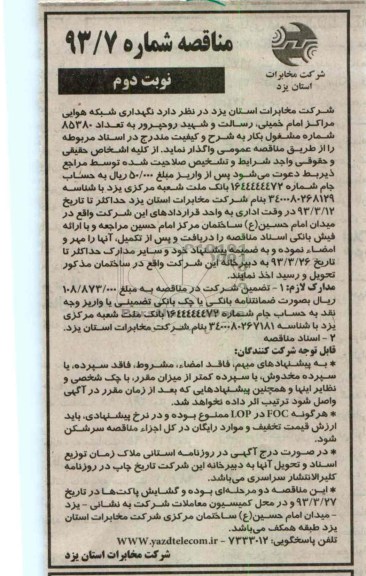 مناقصه شماره ۹۳/۷
شرکت مخابرات
استان یزد
نوبت دوم
شرکت مخابرات استان یزد در نظر دارد نگهداری شبکه هوایی
مراکز امام خمینی، رسالت و شهید روحپرور به تعداد ۸۵۳۸۰
شماره مشغول بکار به شرح و کیفیت مندرج در اسناد مربوطه
را از طریق مناقصه عمومی واگذار نماید. از کلیه اشخاص حقیقی
و حقوقی واجد شرایط و تشخیص صلاحیت شده توسط مراجع
ذیربط دعوت می‌شود پس از واریز مبلغ ۵۰/۰۰۰ ریال به حساب
جام شماره ۱۶۴۴۴۴۴۴۷۲ بانک ملت شعبه مرکزی یزد با شناسه
۳۴۰۰۰۸۰۲۶۸۱۲۹ بنام شرکت مخابرات استان یزد حداکثر تا تاریخ
۹۳/۳/۱۲ در وقت اداری به واحد قراردادهای این شرکت واقع در
میدان امام حسین(ع) ساختمان مرکز امام حسین مراجعه و با ارائه
فیش بانکی اسناد مناقصه را دریافت و پس از تکمیل، آنها را مهر و
امضاء نموده و به ضمیمه پیشنهاد خود و سایر مدارک حداکثر تا
تاریخ ۹۳/۳/۲۶ به دبیرخانه این شرکت واقع در ساختمان مذکور
تحویل و رسید اخذ نمایند.
مدارک لازم: ۱ - تضمین شرکت در مناقصه به مبلغ ۱۰۸/۸۷۳/۰۰۰
ریال بصورت ضمانتنامه بانکی یا چک بانکی تضمینی یا واریز وجه
نقد به حساب جام شماره ۱۶۴۴۴۴۴۴۷۲ بانک ملت شعبه مرکزی
یزد با شناسه ۳۴۰۰۰۸۰۲۶۷۱۸۱ بنام شرکت مخابرات استان یزد.
۲ - اسناد مناقصه
قابل توجه شرکت کنندگان:
* به پیشنهادهای مبهم، فاقد امضاء، مشروط، فاقد سپرده، یا
سپرده مخدوش، یا سپرده کمتر از میزان مقرر، یا چک شخصی و
نظایر اینها و همچنین پیشنهادهایی که بعد از زمان مقرر در آگهی
واصل شود ترتیب اثر داده نخواهد شد.
* هرگونه FOC در LOP ممنوع بوده و در نرخ پیشنهادی، باید
ارزش قیمت تخفیف و موارد رایگان در کل اجزاء مناقصه سرشکن
شود.
* در صورت درج آگهی در روزنامه استانی ملاک زمان توزیع
اسناد و تحویل آنها به دبیرخانه این شرکت تاریخ چاپ در روزنامه
کثیرالانتشار سراسری می‌باشد.
* این مناقصه دو مرحله‌ای بوده و گشایش پاکت‌ها در تاریخ
۹۳/۳/۲۷ و در محل کمیسیون معاملات شرکت به نشانی - یزد
- میدان امام حسین(ع) ساختمان مرکزی شرکت مخابرات استان
یزد طبقه همکف می‌باشد.
تلفن پاسخگویی: ۷۲۳۳۰۱۲ - WWW.yazdtelecom.ir
شرکت مخابرات استان یزد